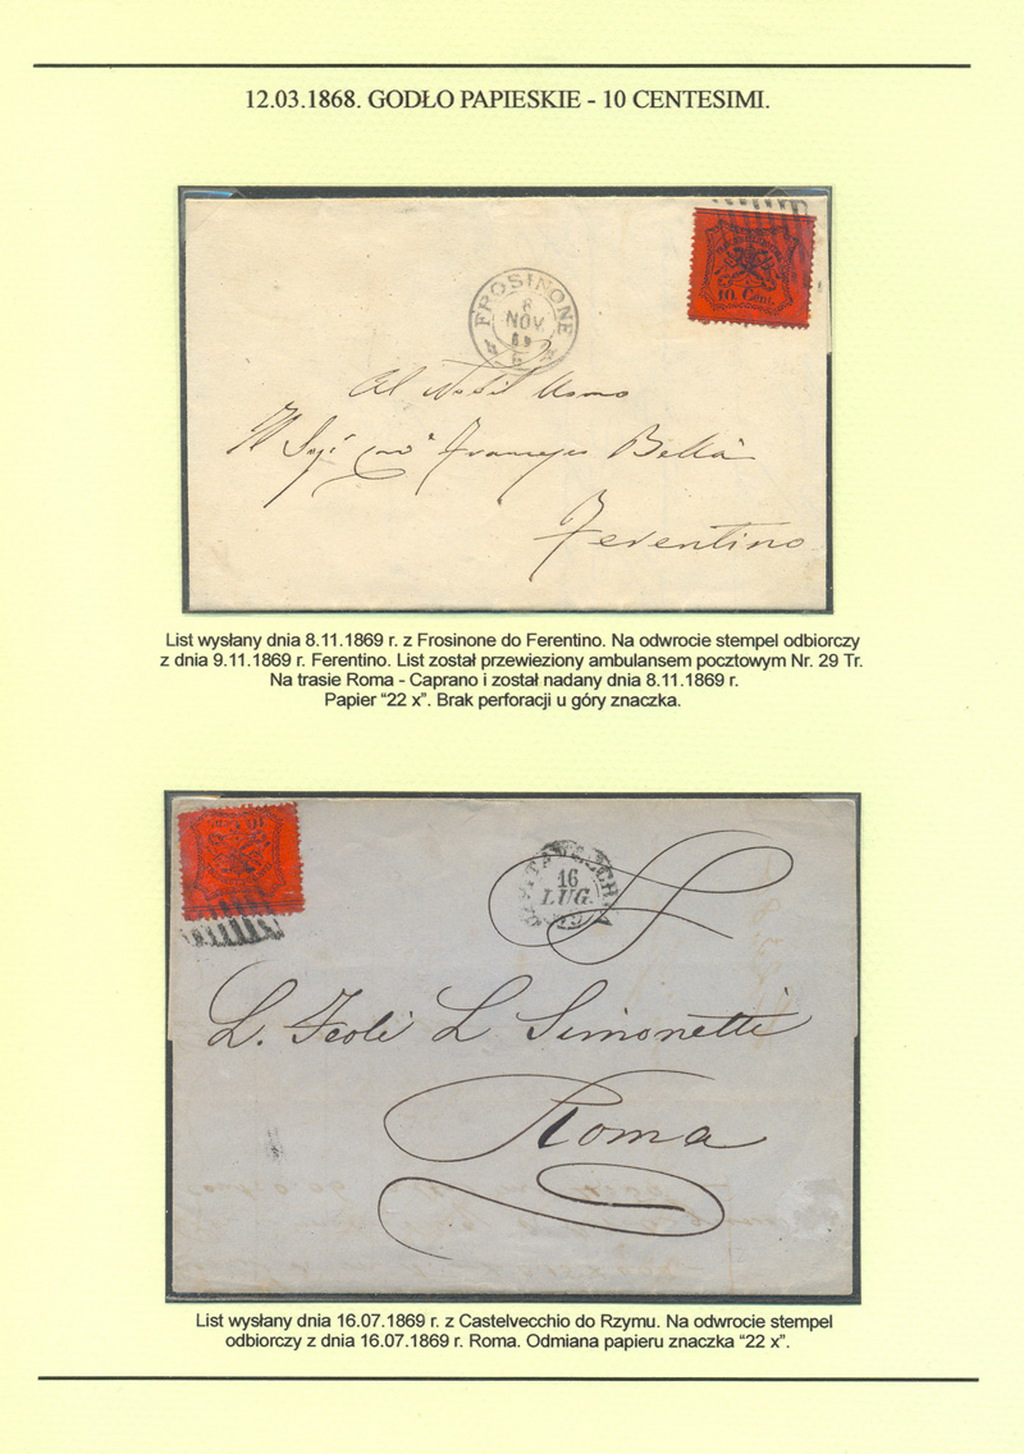 12.03.1868. GODŁO PAPIESKIE - 10 CENTESIMI.
10. Cent.
FROSINONE
8
NOV.
69
Al Nobil Uomo
Bella
Ferentino
List wysłany dnia 8.11.1869 r. z Frosinone do Ferentino. Na odwrocie stempel odbiorczy
z dnia 9.11.1869 r. Ferentino. List został przewieziony ambulansem pocztowym Nr. 29 Tr.
Na trasie Roma - Caprano i został nadany dnia 8.11.1869 r.
Papier “22 x”. Brak perforacji u góry znaczka.
16
LUG.
L. Feoli L Simonetti
Roma
List wysłany dnia 16.07.1869 r. z Castelvecchio do Rzymu. Na odwrocie stempel
odbiorczy z dnia 16.07.1869 r. Roma. Odmiana papieru znaczka “22 x”.